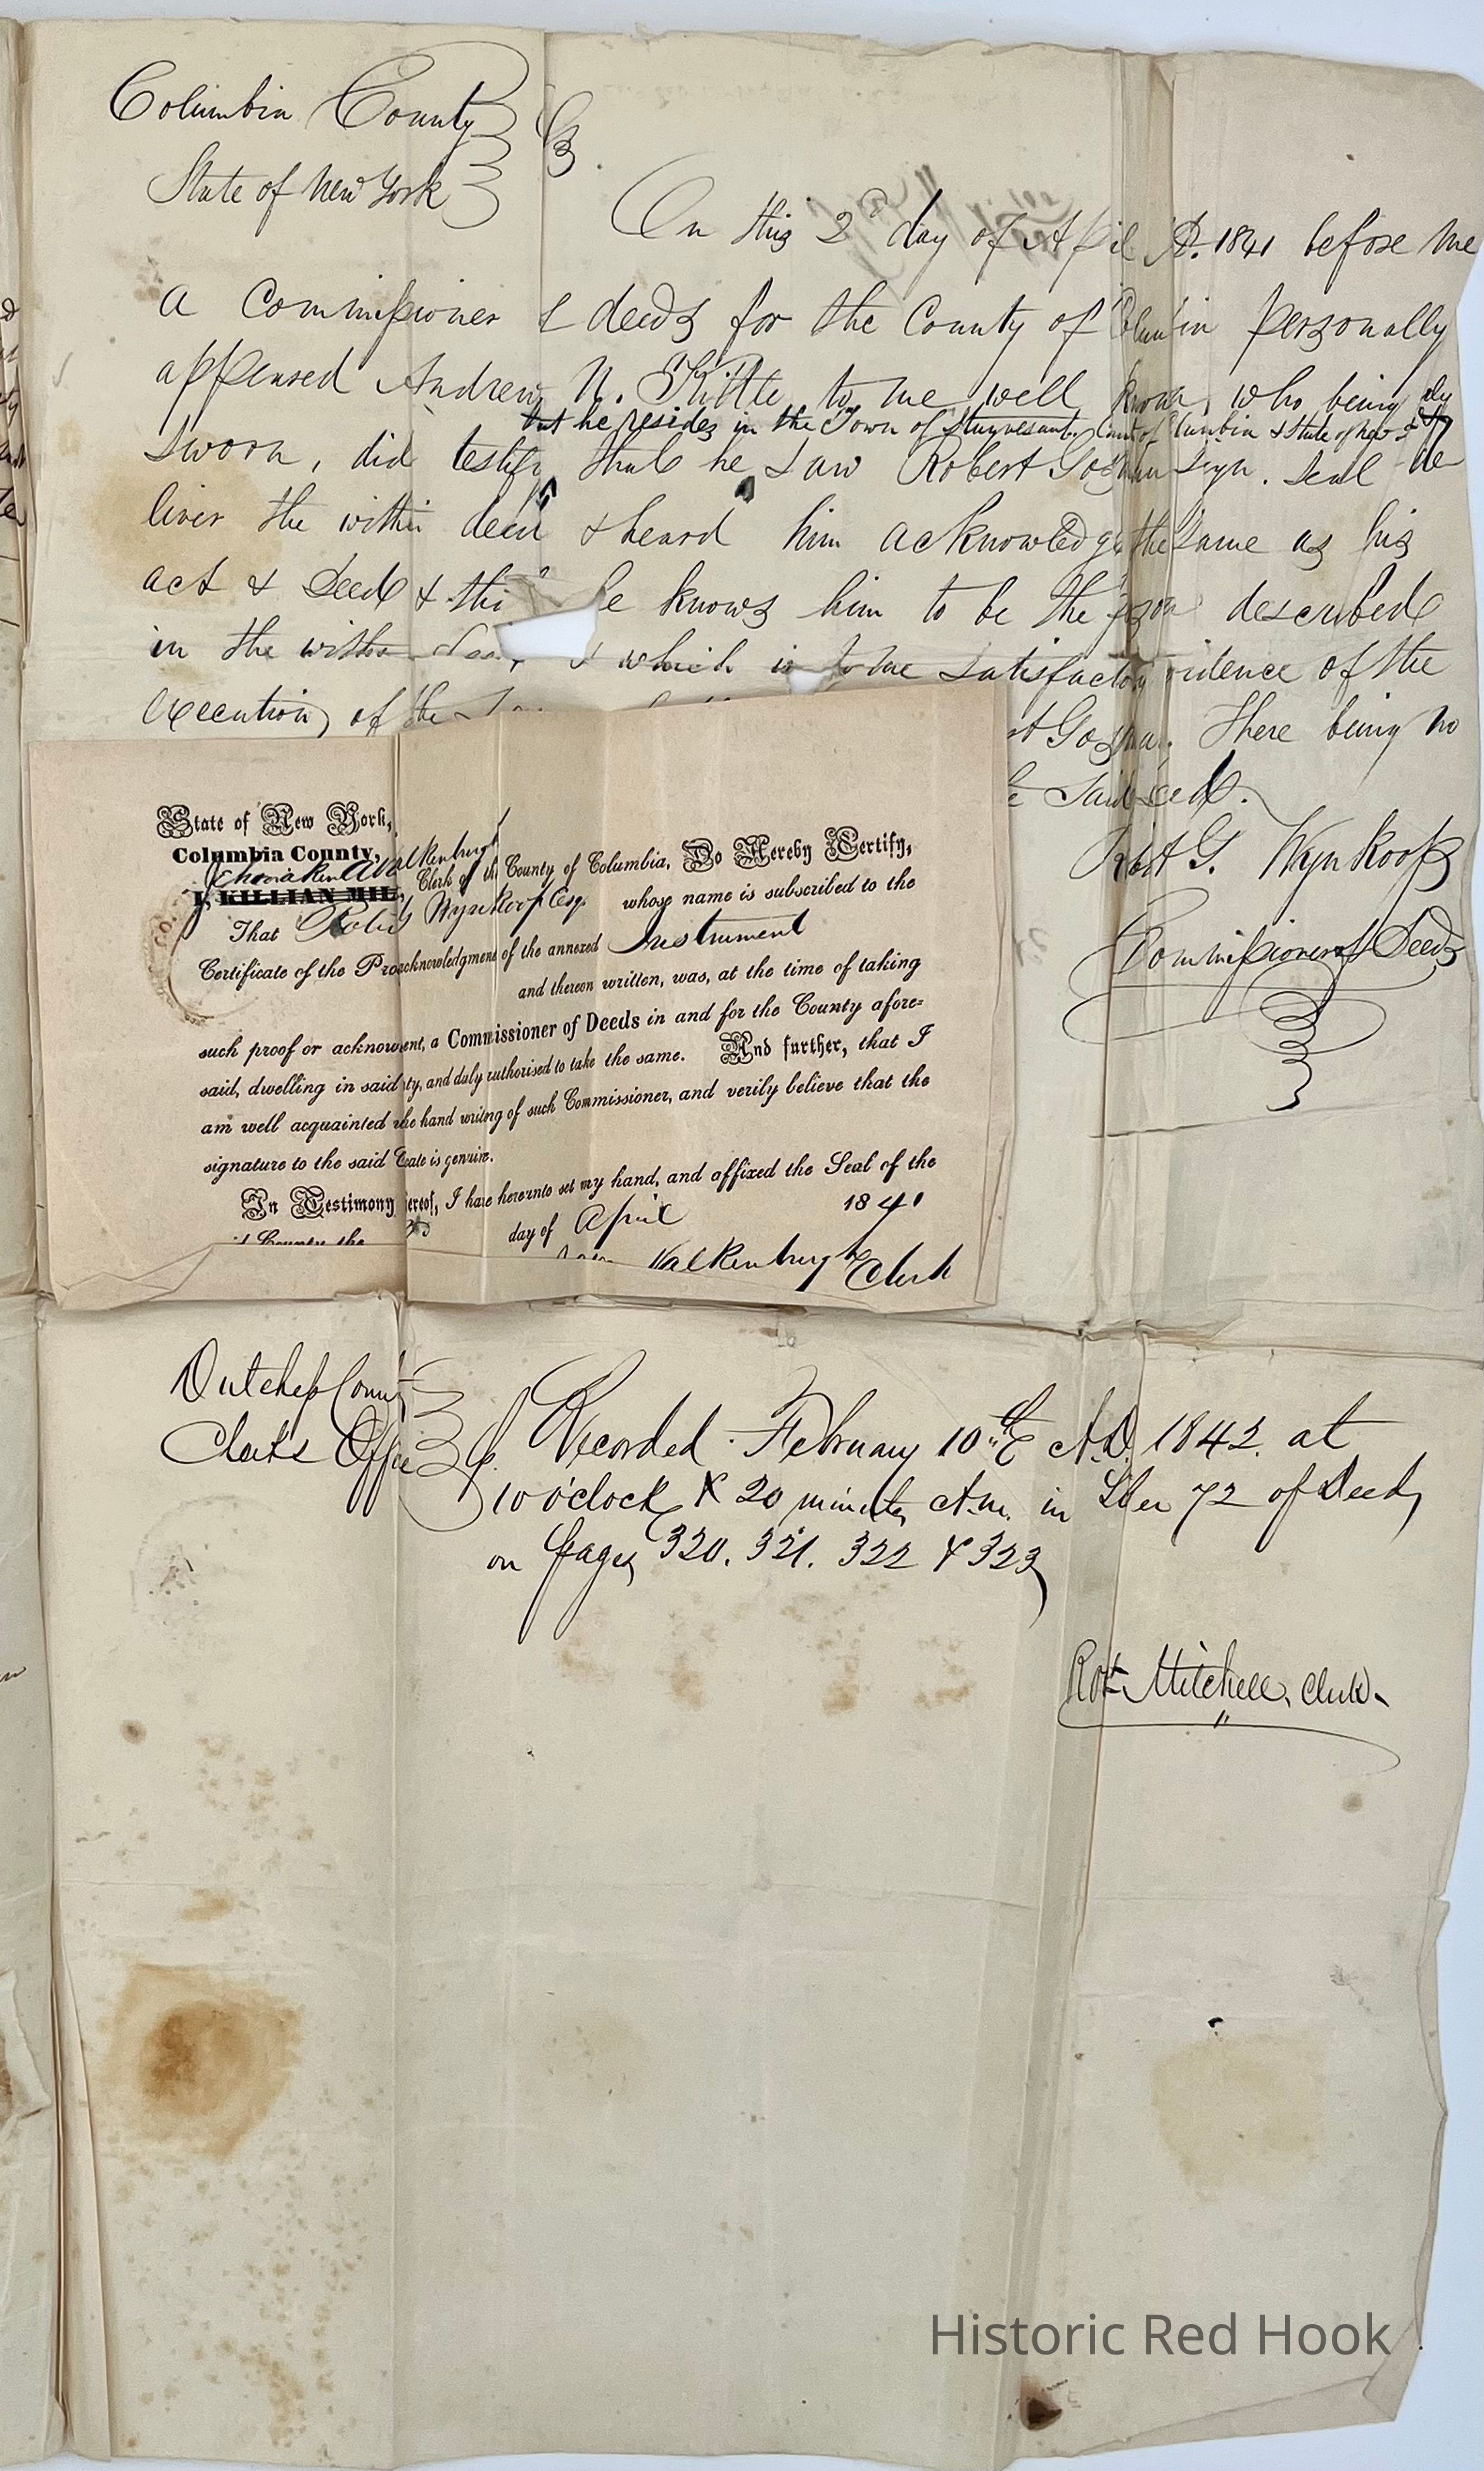 Columbia County
State of New York
On this 2d day of April A. 1841 before me
a Commissioner of deeds for the County of Columbia personally
appeared Andrew N. Kittle to me well known, who being dly
that he resides in the Town of Stuyvesant. County of Columbia & State of New
sworn, did testify that he saw Robert Gosman sign. seal de
liver the within deed & heard him acknowledge the same as his
act & deed & he knows him to be the person described
in the within & which is to me satisfactory evidence of the
execution of the Gosman. There being no
said deed.
Robt G. Wynkoop
Commissioner of Deeds
State of New York,
Columbia County,
Valkenburgh
I, KILLIAN MIL Clerk of the County of Columbia, Do Hereby Certify,
That Robt G Wynkoop Esq. whose name is subscribed to the
Certificate of the Pro acknowledgment of the annexed Instrument
and thereon written, was, at the time of taking
such proof or acknow ent, a Commissioner of Deeds in and for the County afore=
said, dwelling in said ty, and duly authorised to take the same. And further, that I
am well acquainted the hand writing of such Commissioner, and verily believe that the
signature to the said cate is genuine.
In Testimony ereof, I have hereunto set my hand, and affixed the Seal of the
County the day of April 1841
Valkenburgh Clerk
Dutchess County
Clerks Office
Recorded February 10th A.D. 1842. at
10 o'clock & 20 minutes A.m. in Liber 72 of Deeds
on pages 320. 321. 322 & 323
Robt Mitchell, Clerk
Historic Red Hook